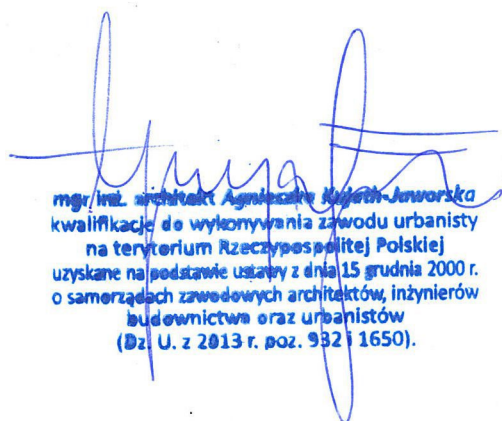 mgr inż. architekt Agnieszka Kujath-Jaworska
kwalifikacje do wykonywania zawodu urbanisty
na terytorium Rzeczypospolitej Polskiej
uzyskane na podstawie ustawy z dnia 15 grudnia 2000 r.
o samorządach zawodowych architektów, inżynierów
budownictwa oraz urbanistów
(Dz. U. z 2013 r. poz. 932 i 1650).